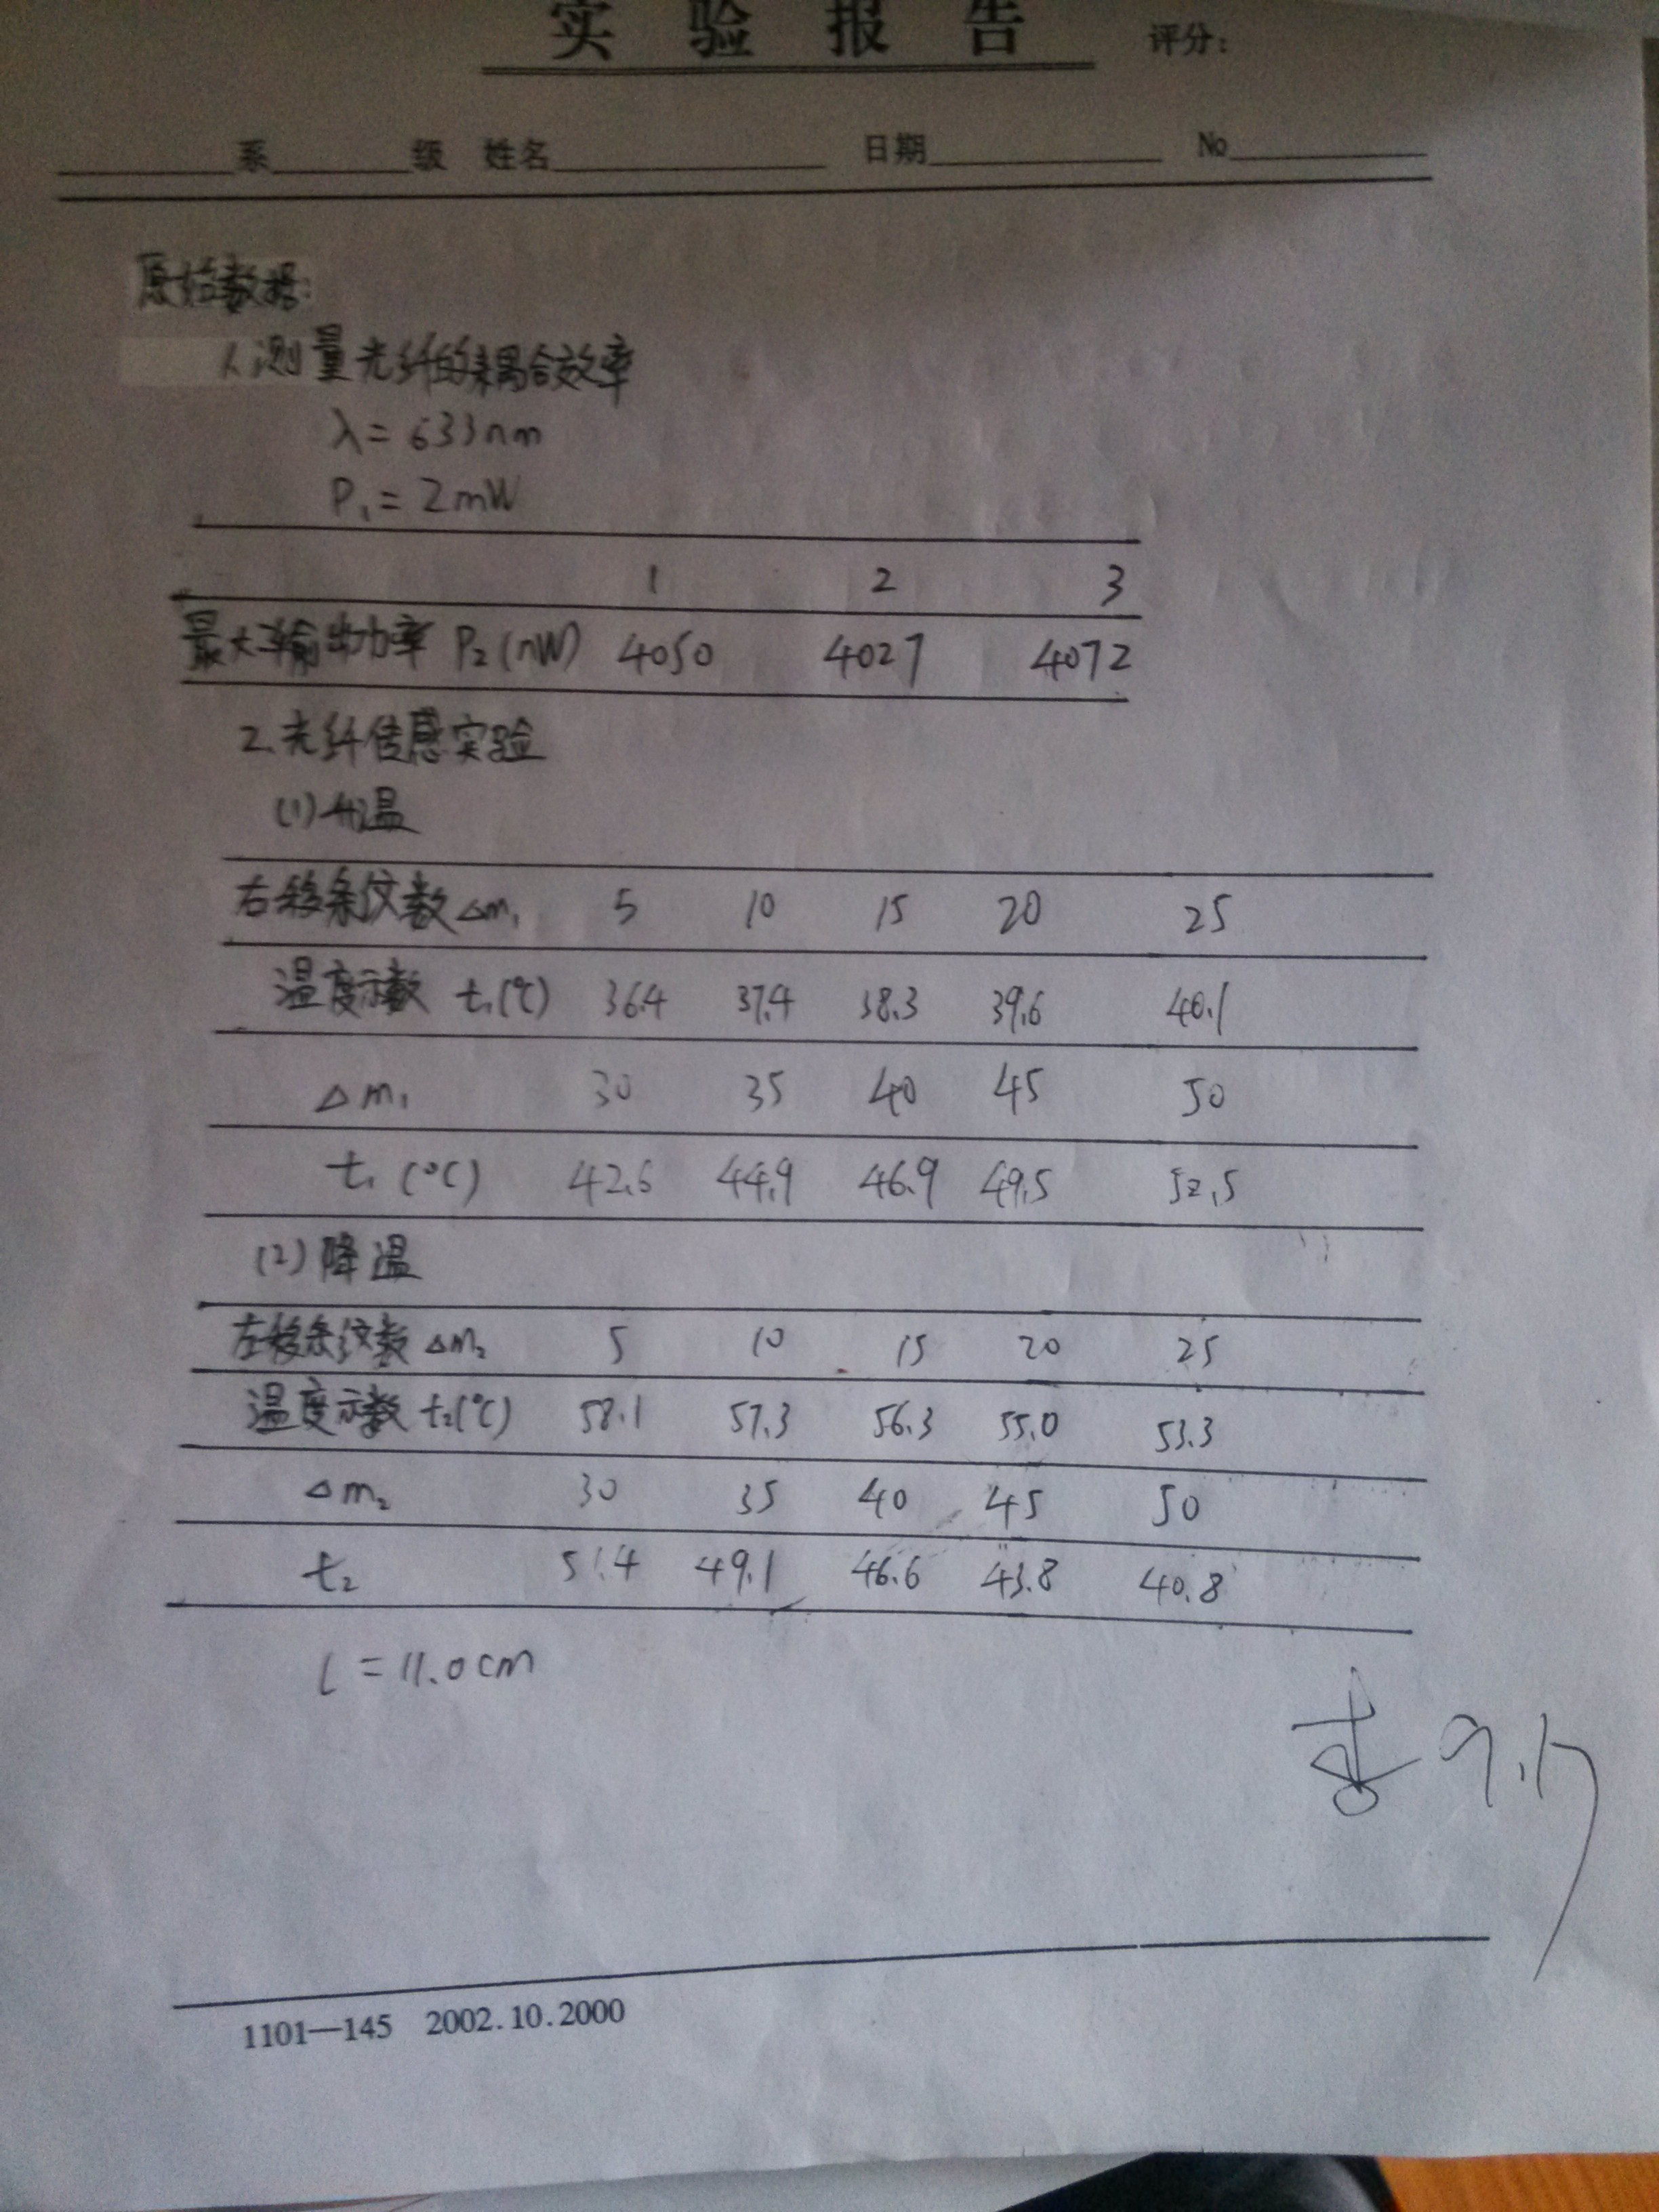 实 验 报 告 评分:
系 级 姓名 日期 No
原始数据:
1.测量光纤的耦合效率
λ=633nm
P₁=2mW
1 2 3
最大输出功率 P₂(nW) 4050 4027 4072
2.光纤传感实验
(1)升温
右移条纹数Δm₁ 5 10 15 20 25
温度示数 t₁(℃) 36.4 37.4 38.3 39.6 40.1
Δm₁ 30 35 40 45 50
t₁(℃) 42.6 44.9 46.9 49.5 52.5
(2)降温
左移条纹数 Δm₂ 5 10 15 20 25
温度示数 t₂(℃) 58.1 57.3 56.3 55.0 53.3
Δm₂ 30 35 40 45 50
t₂ 51.4 49.1 46.6 43.8 40.8
l=11.0cm
9.17
1101—145 2002.10.2000